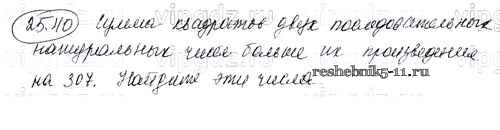 25.40 Сумма квадратов двух последовательных
натуральных чисел больше их произведения
на 307. Найдите эти числа
reshebnik5-11.ru